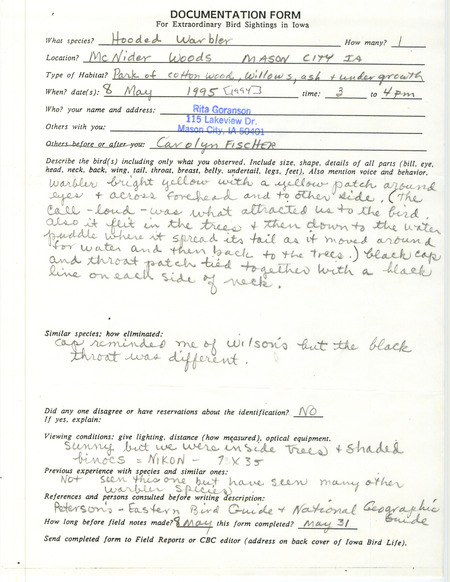 DOCUMENTATION FORM
For Extraordinary Bird Sightings in Iowa
What species? Hooded Warbler How many? 1
Location? McNider Woods MASON CITY IA
Type of Habitat? Park of cottonwood, willows, ash + undergrowth
When? date(s): 8 May 1995 [1994] time: 3 to 4 pm
Who? your name and address: Rita Goranson
115 Lakeview Dr.
Others with you: Mason City, IA 50401
Others before or after you: Carolyn Fischer
Describe the bird(s) including only what you observed. Include size, shape, details of all parts (bill, eye,
head, neck, back, wing, tail, throat, breast, belly, undertail, legs, feet). Also mention voice and behavior.
Warbler bright yellow with a yellow patch around
eyes + across forehead and to other side. (The
call - loud - was what attracted us to the bird
also it flit in the trees + then down to the water
puddle where it spread its tail as it moved around
for water and then back to the trees.) black cap
and throat patch tied together with a black
line on each side of neck.
Similar species; how eliminated:
cap reminded me of Wilson's but the black
throat was different.
Did any one disagree or have reservations about the identification? NO
If yes, explain:
Viewing conditions: give lighting, distance (how measured), optical equipment.
Sunny but we were inside trees + shaded
binocs = NIKON - 7 X 35
Previous experience with species and similar ones:
Not seen this one but have seen many other
warbler species
References and persons consulted before writing description:
Peterson's - Eastern Bird Guide + National Geographic
Guide
How long before field notes made? 8 May this form completed? May 31
Send completed form to Field Reports or CBC editor (address on back cover of Iowa Bird Life).